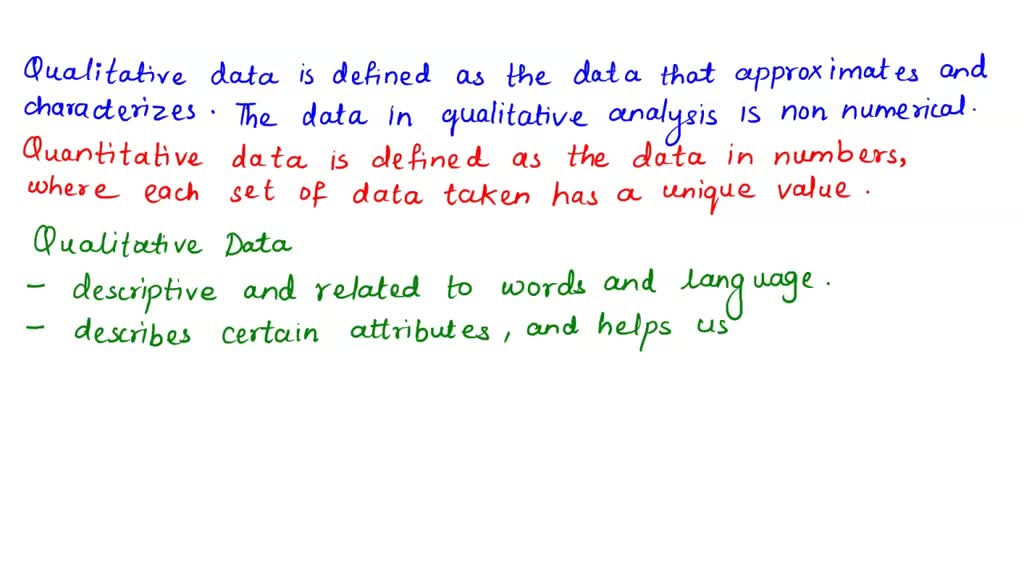 Qualitative data is defined as the data that approximates and
characterizes. The data in qualitative analysis is non numerical.
Quantitative data is defined as the data in numbers,
where each set of data taken has a unique value.
Qualitative Data
- descriptive and related to words and language.
- describes certain attributes, and helps us